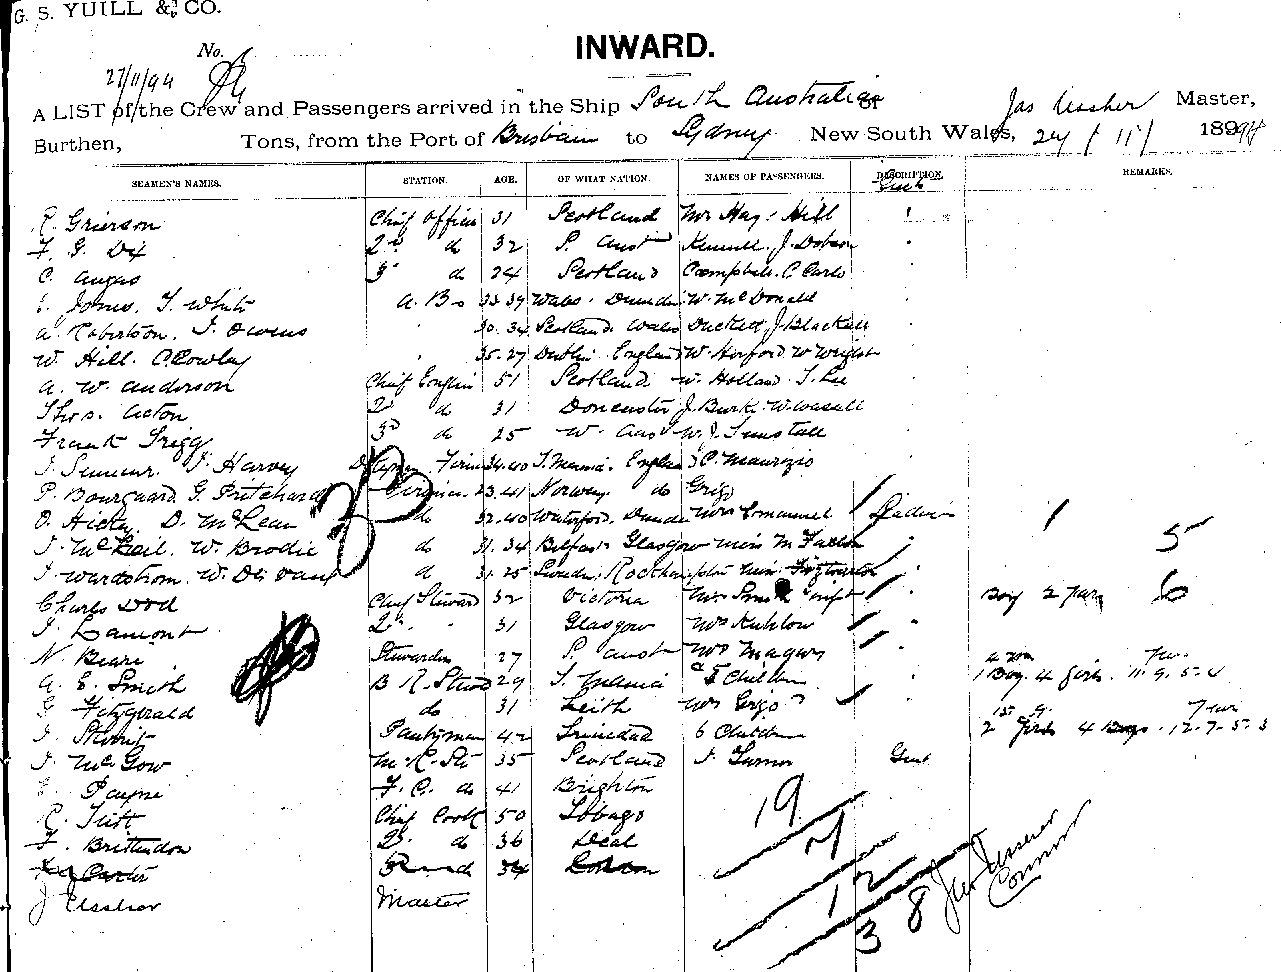 G. S. YUILL & CO.
No.
INWARD.
27/11/94
A LIST of the Crew and Passengers arrived in the Ship South Australian Jas Ussher Master,
Burthen, Tons, from the Port of Brisbane to Sydney New South Wales, 27/11/ 1894
SEAMEN'S NAMES. STATION. AGE. OF WHAT NATION. NAMES OF PASSENGERS. DESCRIPTION. REMARKS.
Gent
R. Grierson Chief Officer 31 Scotland Mr Hay. Hill
F. G. Dix 2nd do 32 S. Aust J. Dobson
C. Angus 3rd do 24 Scotland Campbell. C Carls
Jones. T. White A. Bs 33 39 Wales. Dundee W. McDonald
A. Robertson. J. Owens 30. 34 Scotland. Wales Duckett J. Blackall
W. Hill. C. Rowley 35. 27 Dublin. England W. Horford W Wright
A. W. Anderson Chief Engin 51 Scotland W. Holland. T. Lee
Thos. Acton 2 do 31 Doncaster J. Burk. W.
Frank Trigg 3rd do 25 W. Aus W. J. Tunstall
J. Harvey 34. 40 T. Mania. England C. Maurizio
P. Bourgaard. G. Pritchard Fireman 23. 41 Norway. do Grigo
O. Hickey. D. McLean do 32. 40 Waterford. Dundee Mrs Emanuel Ladies 1
J. McNeil. W. Brodie do 31. 34 Belfast. Glasgow Miss M. 5
J. Wardstrom. W. do 31. 25 Sweden. Rockhampton Miss
Charles Dod Chief Steward 32 Victoria Mrs Smith Boy 2 years 6
J. Lamont 2nd " 31 Glasgow Mrs Kuhlow
N. Beare Stewardess 27 S. Aust Mrs Magus
A. E. Smith B. R. Stwd 29 T. Mania & 5 Children 1 Boy. 4 Girls. 11. 9. 5. 4
G. Fitzgerald do 31 Leith Mrs Grigo
J. Pantryman 42 Trinidad 6 Children 2 Girls 4 Boys. 12. 7. 5. 3
J. McGow M. R. St 35 Scotland J. Turner Gent
Payne F. C. do 41 Brighton
R. Tutt Chief Cook 50 Tobago
F. Brittendon 2nd do 36 Deal
Carter 3rd do 34 London
J. Ussher Master
19
7
12
38
Jas Ussher